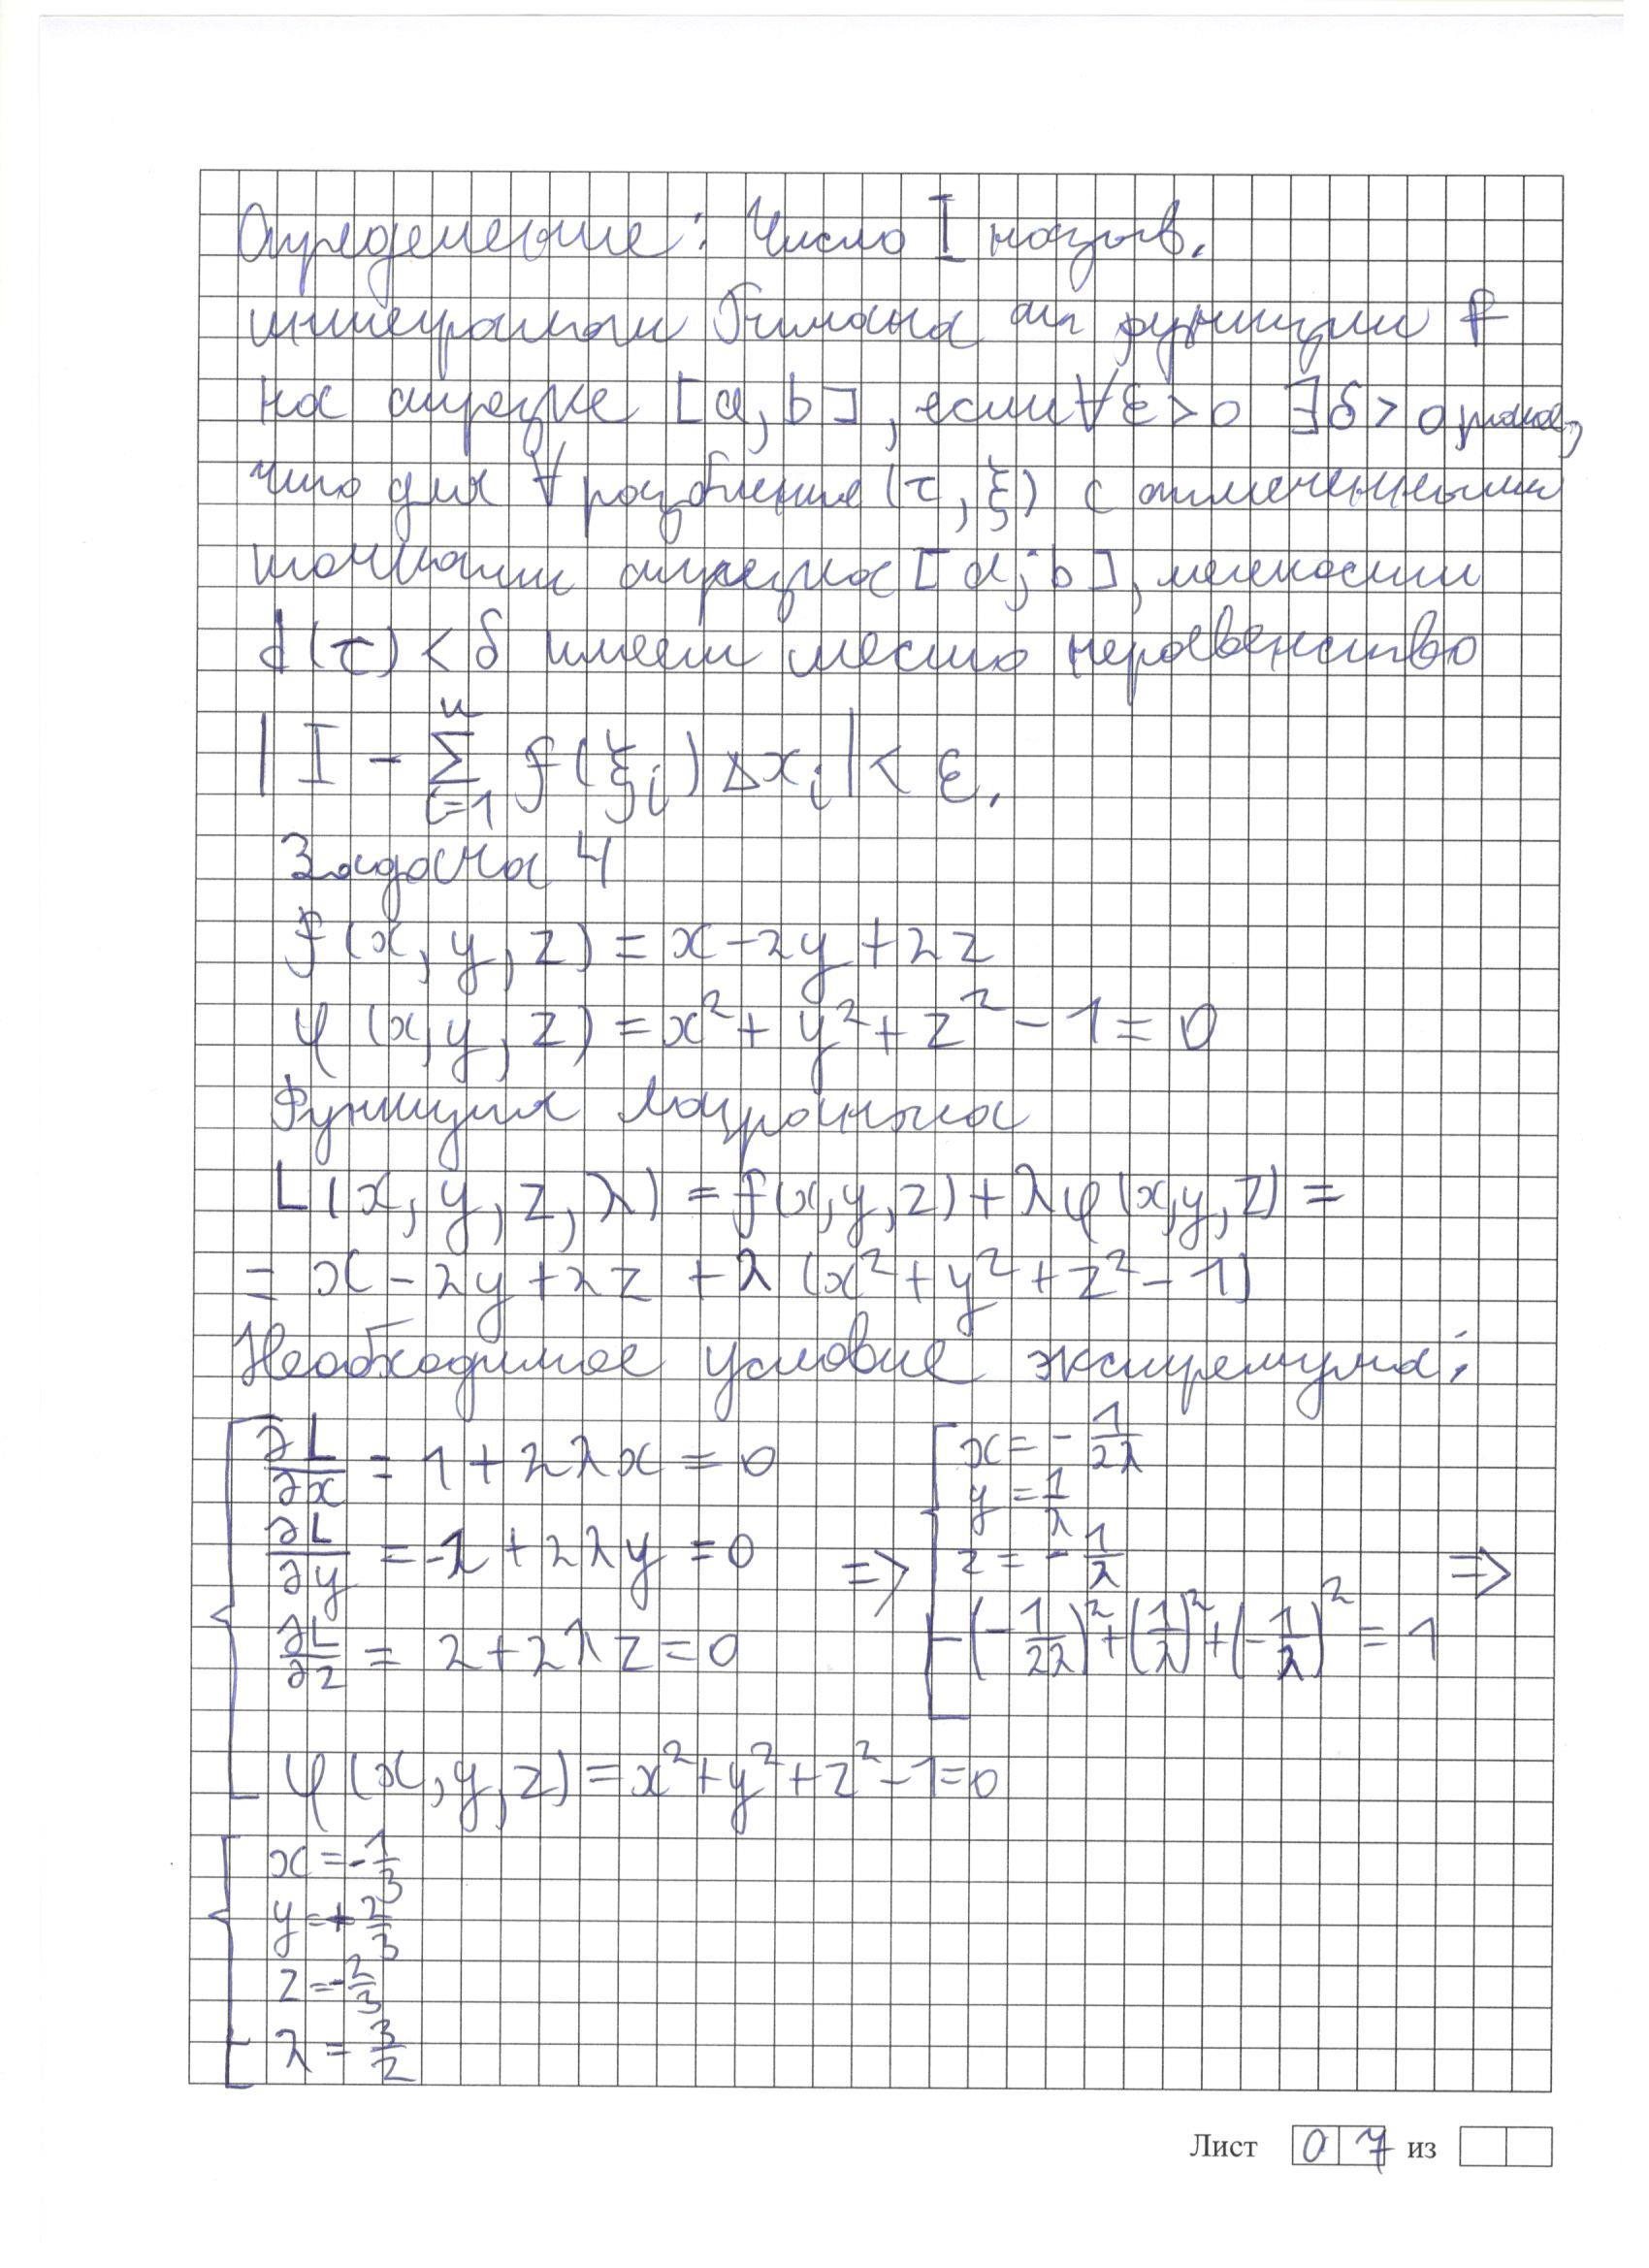 Определение: Число I назыв.
интегралом Римана от функции f
на отрезке [a, b], если ∀ε>0 ∃δ>0 такое,
что для ∀ разбиения (τ, ξ) с отмеченными
точками отрезка [a; b], мелкости
d(τ) < δ имеет место неравенство
| I - ∑ᵢ₌₁ⁿ f(ξᵢ) Δxᵢ | < ε.
Задача 4
f(x, y, z) = x - 2y + 2z
φ(x, y, z) = x² + y² + z² - 1 = 0
Функция Лагранжа
L(x, y, z, λ) = f(x, y, z) + λφ(x, y, z) =
= x - 2y + 2z + λ(x² + y² + z² - 1)
Необходимое условие экстремума:
∂L/∂x = 1 + 2λx = 0
∂L/∂y = -2 + 2λy = 0
∂L/∂z = 2 + 2λz = 0
φ(x, y, z) = x² + y² + z² - 1 = 0
=>
x = - 1/2λ
y = 1/λ
z = - 1/λ
(- 1/2λ)² + (1/λ)² + (- 1/λ)² = 1
=>
x = - 1/3
y = + 2/3
z = - 2/3
λ = 3/2
Лист 07 из